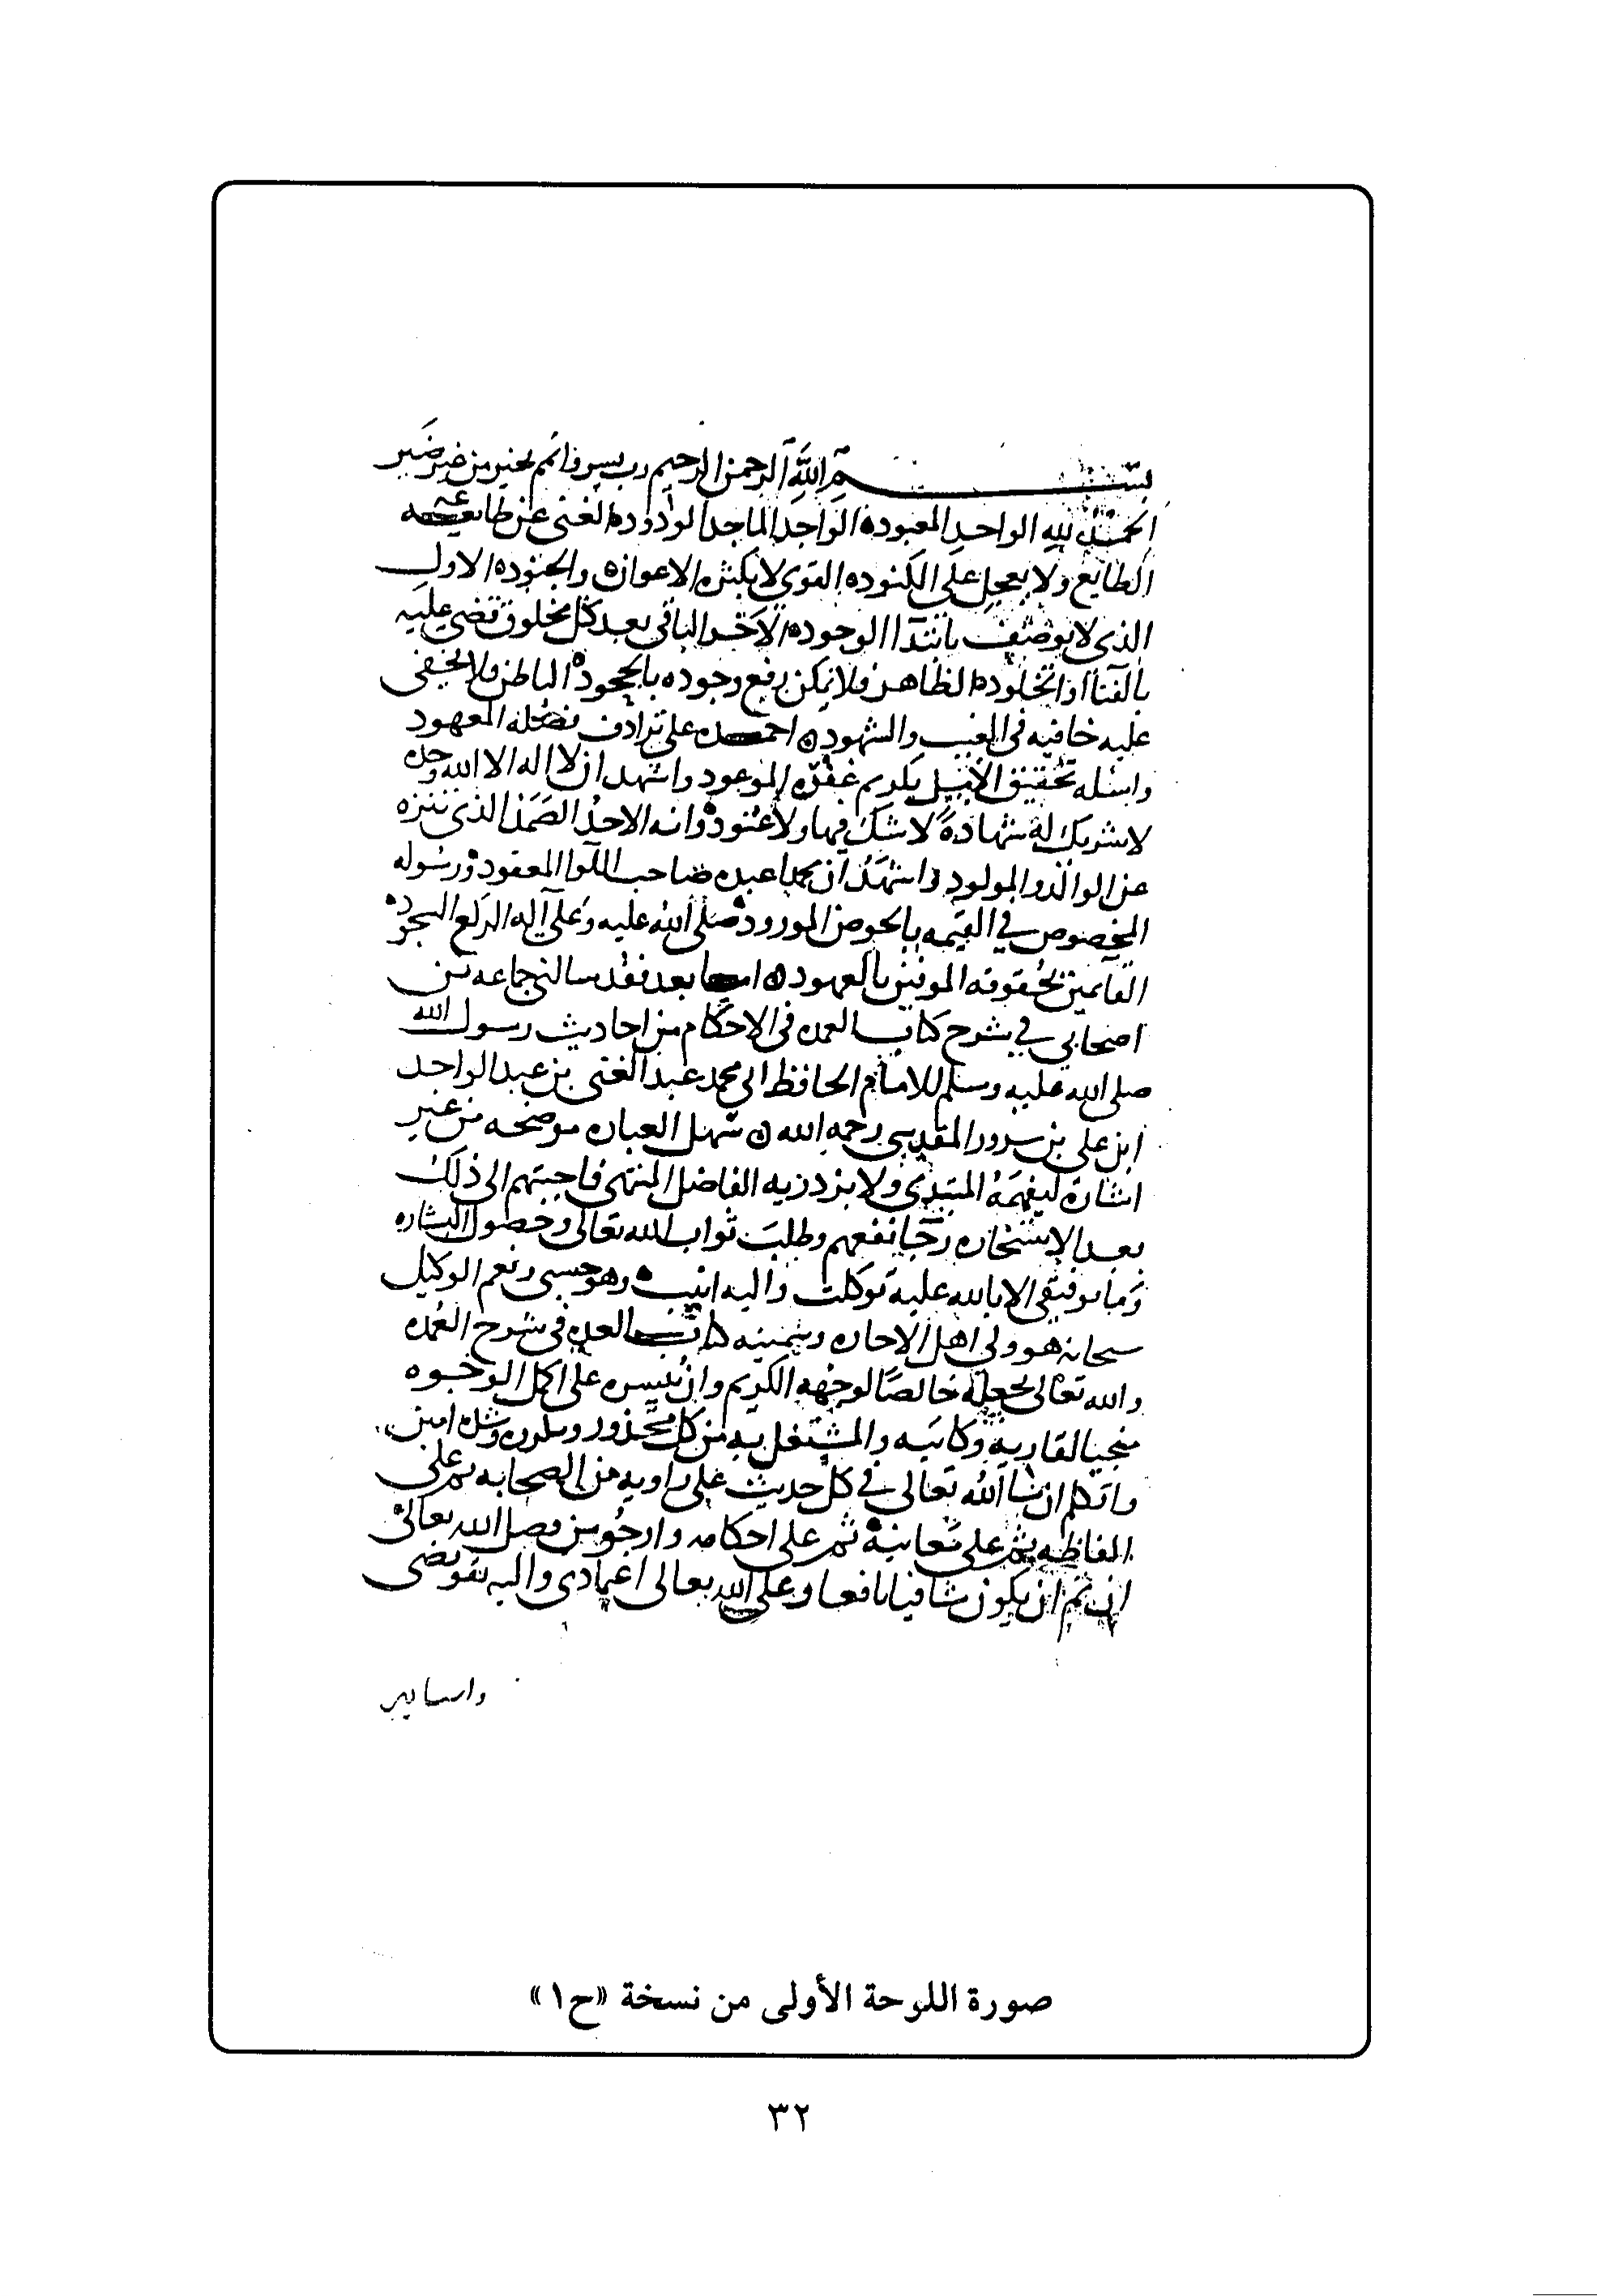 بسم الله الرحمن الرحيم رب يسر واتم بخير من غير ضير
الحمد لله الواحد المعبود الواجد الماجد الودود الغنى عن طاعة
الطايع ولا يعجل على الكنود القوى لا بكثرة الاعوان والجنود الاول
الذى لا يوصف بابتدا الوجود الآخر الباقى بعد كل مخلوق قضى عليه
بالفنا او الخلود الظاهر فلا يمكن رفع وجوده بالجحود الباطن فلا يخفى
عليه خافيه فى الغيب والشهود احمده على ترادف فضله المعهود
واسئله تحقيق الامل بكرم عفوه الموعود واشهد ان لا اله الا الله وحده
لا شريك له شهادة لا شك فيها ولا عنود وانه الاحد الصمد الذى تنزه
عن الوالد والمولود واشهد ان محمدا عبده صاحب اللوا المعقود ورسوله
المخصوص في القيمه بالحوض المورود صلى الله عليه وعلى آله الركع السجود
القايمين بحقوقه الموفين بالعهود اما بعد فقد سالنى جماعه من
اصحابي في شرح كتاب العمده فى الاحكام من احاديث رسول الله
صلى الله عليه وسلم للامام الحافظ ابي محمد عبد الغنى بن عبد الواحد
ابن على بن سرور المقدسي رحمه الله سهل العباره موضحه من غير
اشارة ليفهمه المبتدى ولا يزدريه الفاضل المنتهى فاجبتهم الى ذلك
بعد الاستخاره رجا نفعهم وطلب ثواب الله تعالى وحصول البشاره
وما توفيقى الا بالله عليه توكلت واليه انيب وهو حسبى ونعم الوكيل
سبحانه هو ولي اهل الاجاره وسميته كتاب العده فى شرح العمده
والله تعالى يجعله خالصا لوجهه الكريم وان ييسره على اكمل الوجوه
منجيا لقاريه وكاتبه والمشتغل به من كل محذور ومكروه وشده امين
واتكلم ان شا الله تعالى في كل حديث على راويه من الصحابه ثم على
الفاظه ثم على معانيه ثم على احكامه وارجو من فضل الله تعالى
ان تم ان يكون شافيا نافعا وعلى الله تعالى اعتمادى واليه تفويضى
صورة اللوحة الأولى من نسخة «ح١»
٣٢